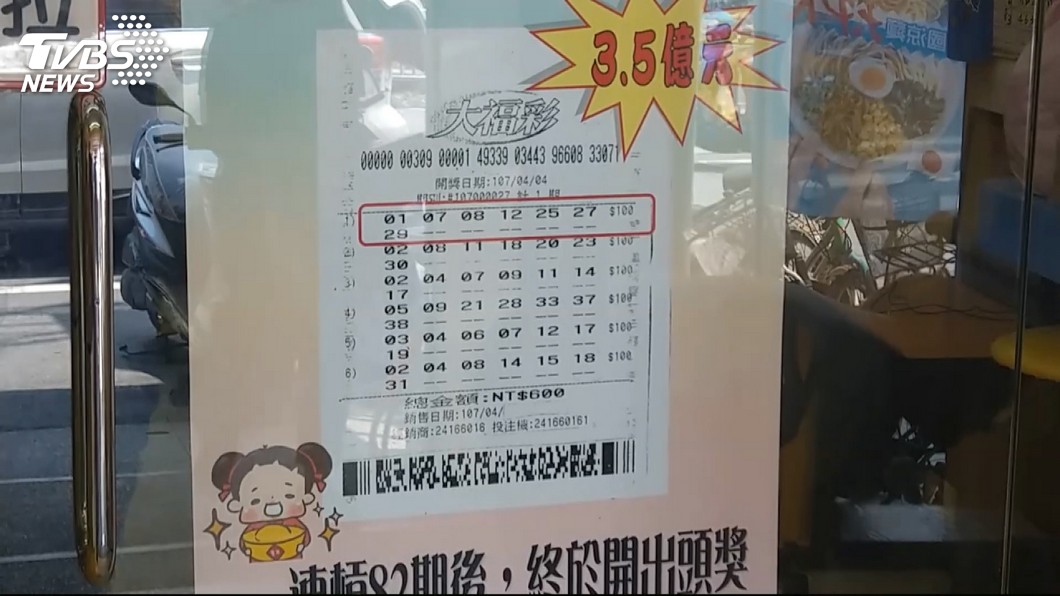 拉
TVBS
NEWS
3.5億元
大福彩
00000 00309 00001 49339 03443 96608 33071
開獎日期:107/04/04
期別:#107000027 計 1 期
1) 01 07 08 12 25 27 $100
29 -- -- -- -- --
2) 02 08 11 18 20 23 $100
30 -- -- -- -- --
3) 02 04 07 09 11 14 $100
17 -- -- -- -- --
4) 05 09 21 28 33 37 $100
38 -- -- -- -- --
5) 03 04 06 07 12 17 $100
19 -- -- -- -- --
6) 02 04 08 14 15 18 $100
31 -- -- -- -- --
總金額:NT$600
銷售日期:107/04/
銷商:24166016 投注機:241660161
連槓82期後，終於開出頭獎